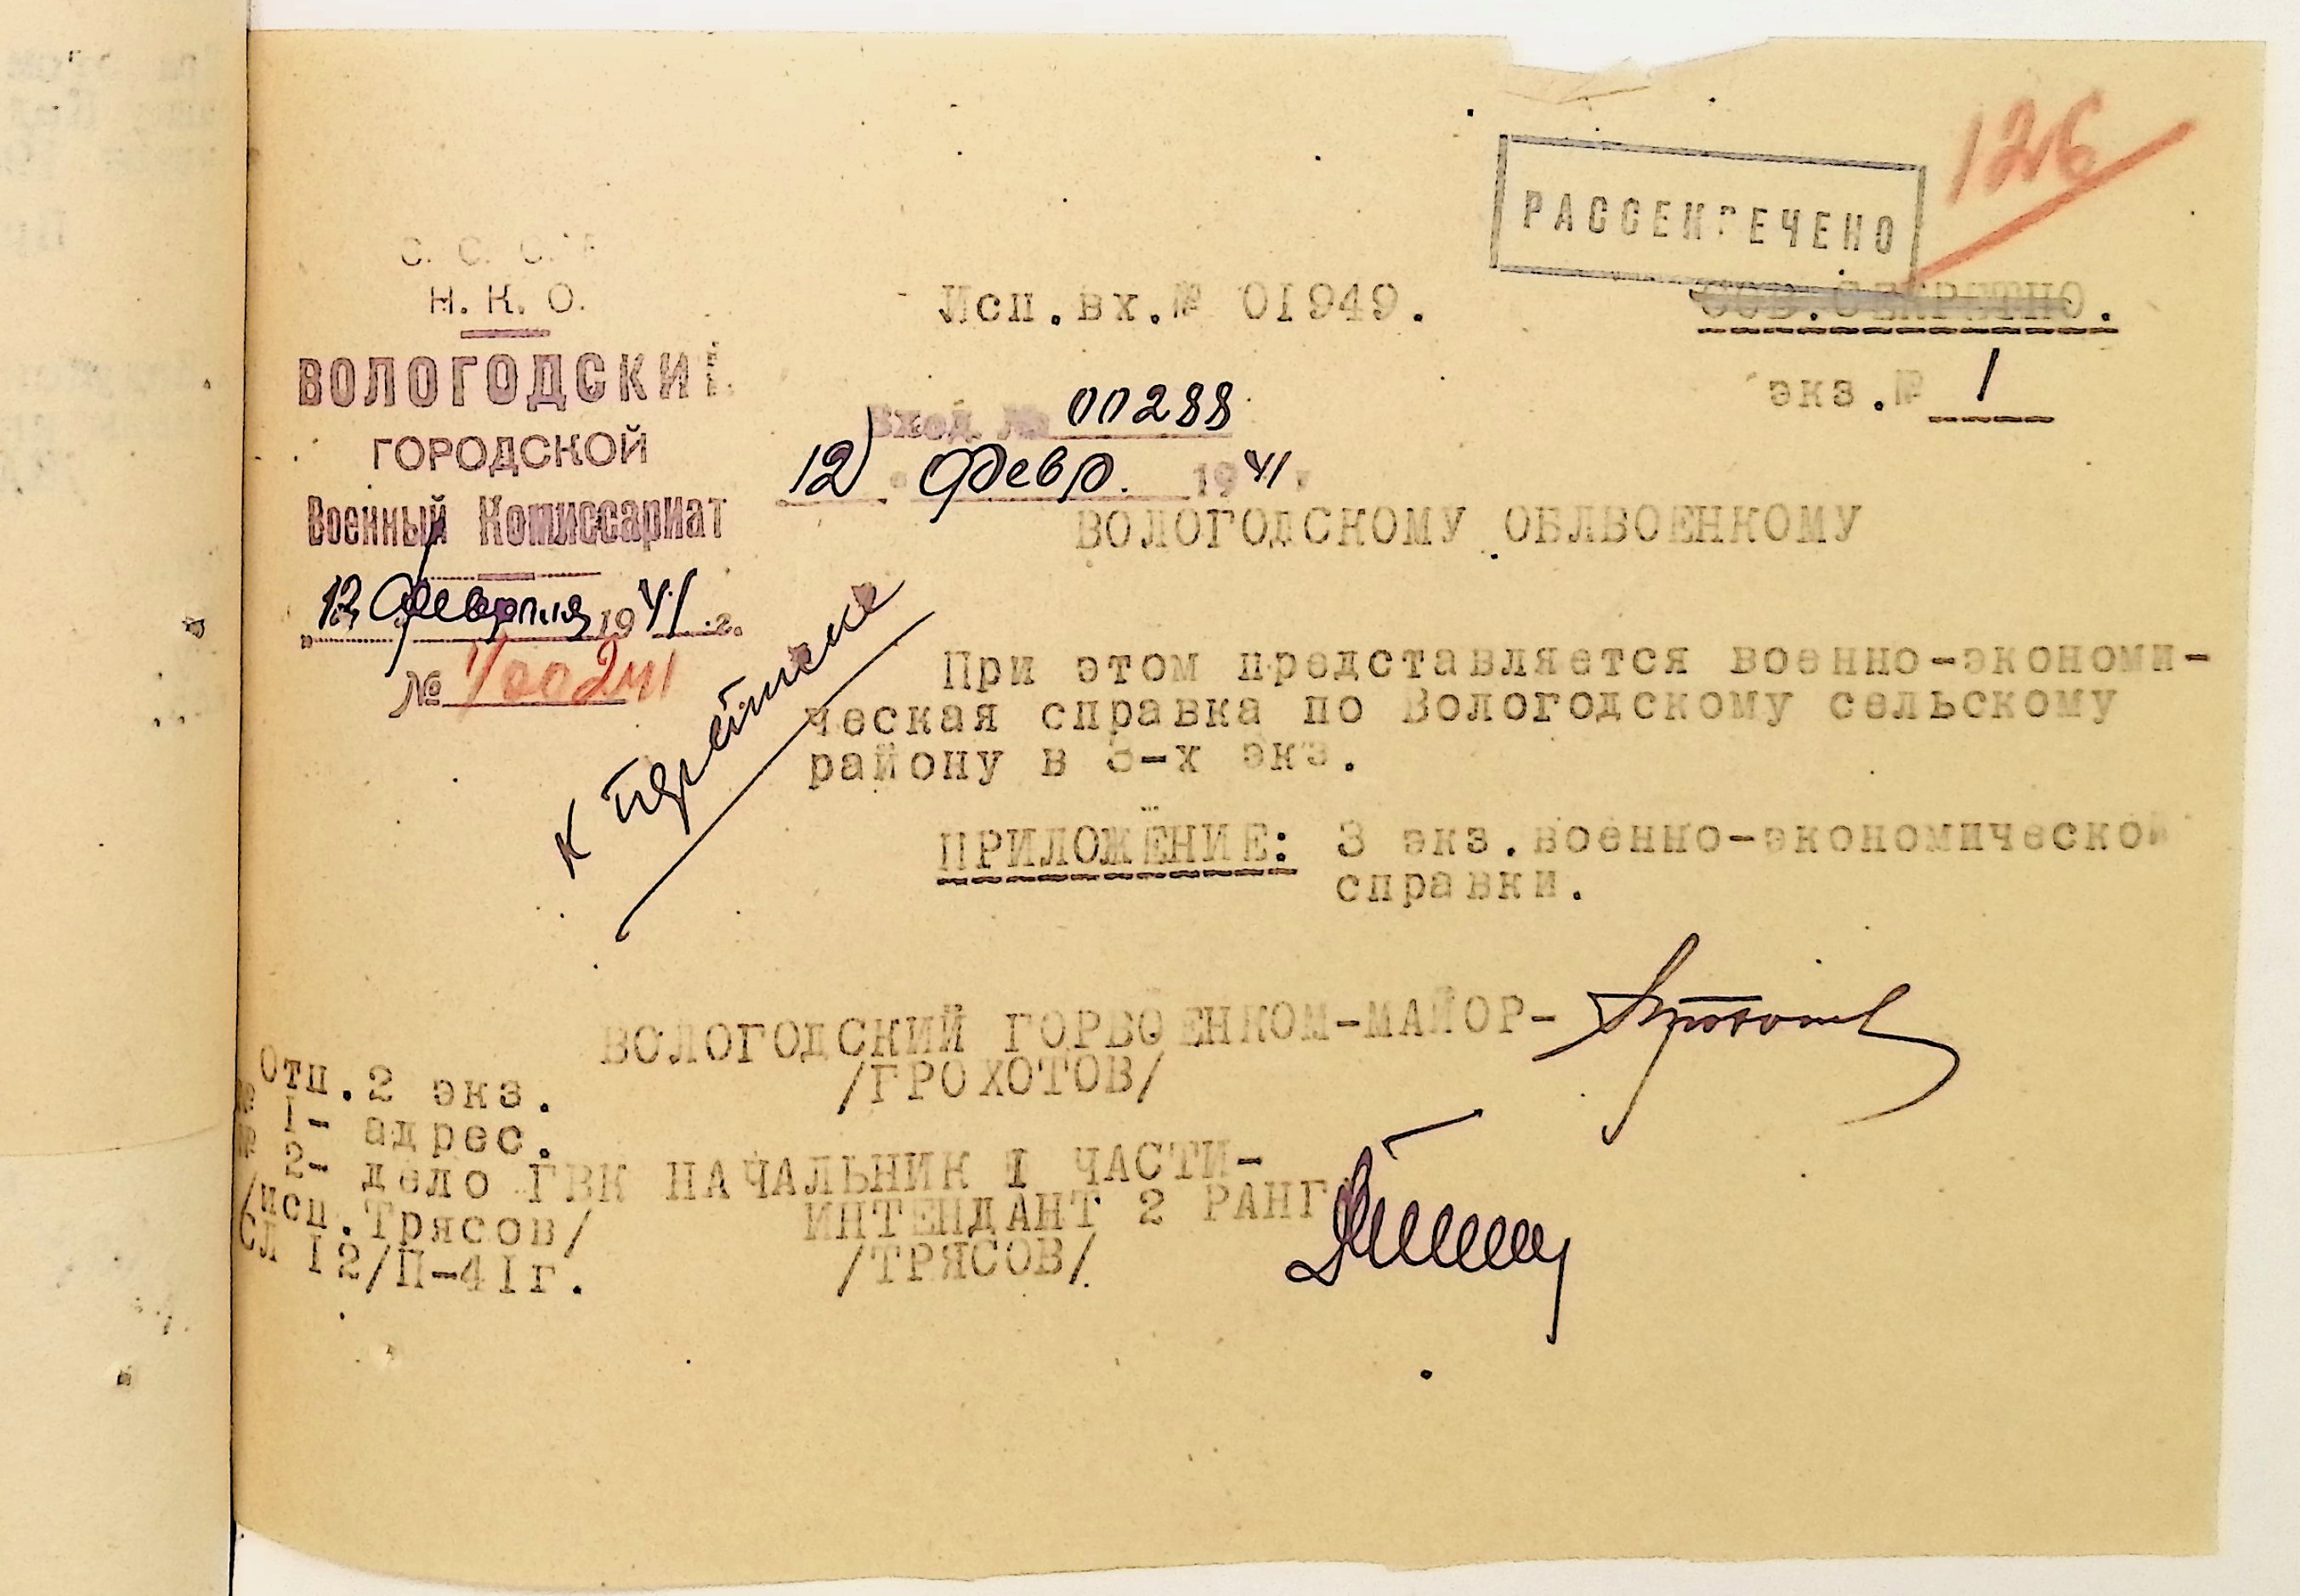 126
РАССЕКРЕЧЕНО
С. С. С. Р
Н. К. О.
ВОЛОГОДСКИЙ
ГОРОДСКОЙ
Военный Комиссариат
"12" февраля 1941 г.
№
Исп.вх.№ 01949.
СОВ.СЕКРЕТНО.
экз.№ 1
Вход. № 00288
12 " февр. 1941 г
ВОЛОГОДСКОМУ ОБЛВОЕНКОМУ
к переписке
При этом представляется военно-экономи-
ческая справка по Вологодскому сельскому
району в 3-х экз.
ПРИЛОЖЕНИЕ: 3 экз.военно-экономической
справки.
ВОЛОГОДСКИЙ ГОРВОЕНКОМ-МАЙОР-
/ГРОХОТОВ/
НАЧАЛЬНИК I ЧАСТИ-
ИНТЕНДАНТ 2 РАНГ
/ТРЯСОВ/
Отп.2 экз.
№ I- адрес.
№ 2- дело ГВК
/исп.Трясов/
СЛ I2/П-4Iг.